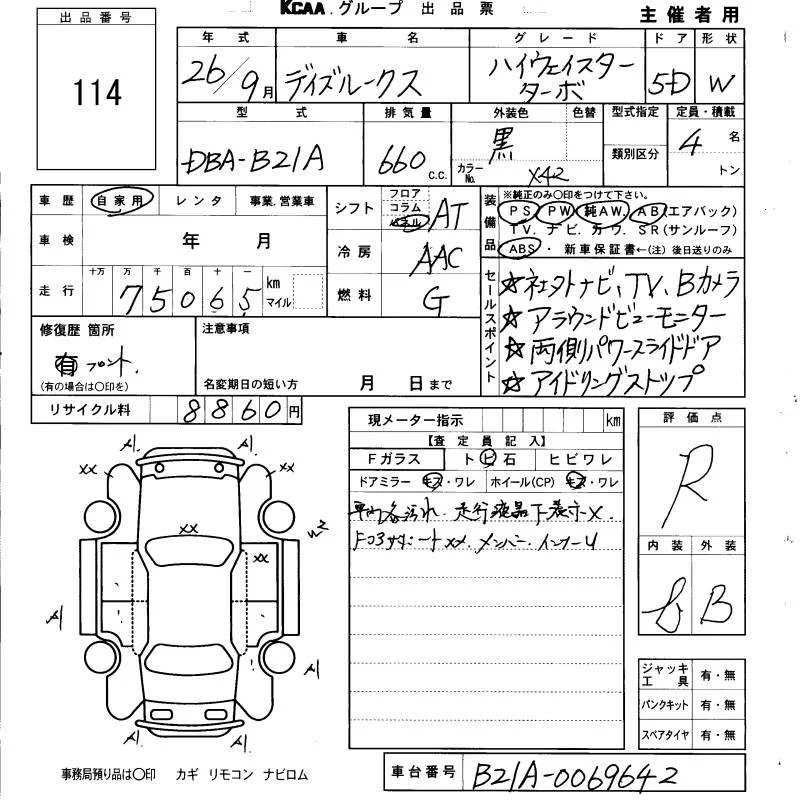 KCAA グループ 出品票
主催者用
出品番号
114
年式 車名 グレード ドア 形状
26/9月 デイズルークス ハイウェイスター ターボ 5D W
型式 排気量 外装色 色替 型式指定 定員・積載
DBA-B21A 660 c.c. 黒 カラーNo. X42 類別区分 4 名
トン
車歴 自家用 レンタ 事業.営業車
車検 年 月
十万 万 千 百 十 一
走行 7 5 0 6 5 km マイル
シフト フロア コラム パネル AT
冷房 AAC
燃料 G
装備品
※純正のみ○印をつけて下さい。
PS PW 純AW. AB(エアバック)
TV. ナビ. カワ. SR(サンルーフ)
ABS・ 新車保証書←(注) 後日送りのみ
セールスポイント
☆社外ナビ、TV、Bカメラ
☆アラウンドビューモニター
☆両側パワースライドドア
☆アイドリングストップ
修復歴 箇所
有 フロント.
(有の場合は○印を)
注意事項
名変期日の短い方 月 日まで
リサイクル料 8 8 6 0 円
現メーター指示 km
【査定員記入】
Fガラス トビ石 ヒビワレ
ドアミラー キズ・ワレ ホイール(CP) キズ・ワレ
車内各汚れ. 走行液晶下表示×.
XX. メンバー. インナーU
評価点
R
内装 外装
B
ジャッキ工具 有・無
パンクキット 有・無
スペアタイヤ 有・無
A1 A1
XX XX
XX
XX
A1 A1
A1 A1
事務局預り品は○印 カギ リモコン ナビロム
車台番号 B21A-0069642